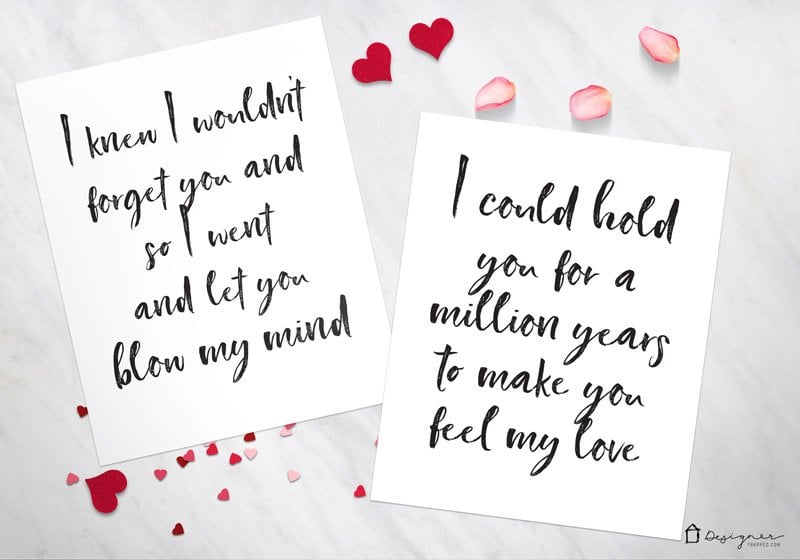 I knew I wouldn't
forget you and
so I went
and let you
blow my mind
I could hold
you for a
million years
to make you
feel my love
Designer
TRAPPED.COM